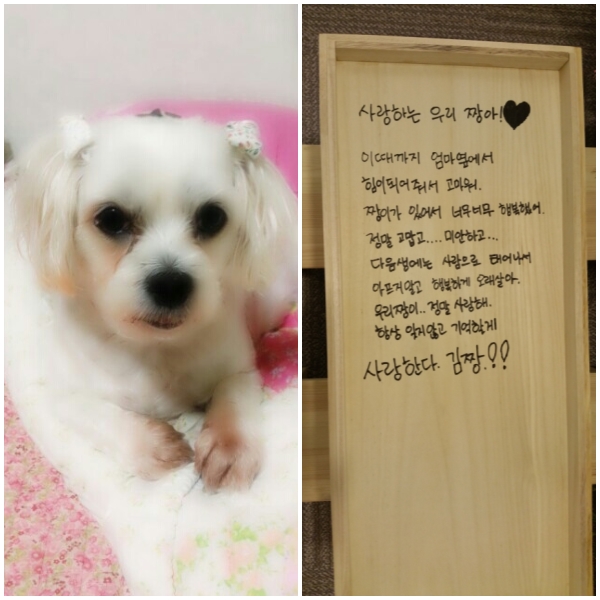 사랑하는 우리 짱아!♥
이때까지 엄마옆에서
힘이되어줘서 고마워.
짱이가 있어서 너무너무 행복했어.
정말 고맙고.... 미안하고...
다음생에는 사람으로 태어나서
아프지않고 행복하게 오래살아.
우리짱이.. 정말 사랑해.
항상 잊지않고 기억할게
사랑한다. 김짱.!!